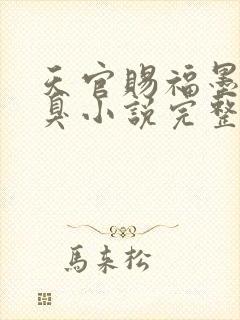 天官賜福墨
臭小說完整
馬來松